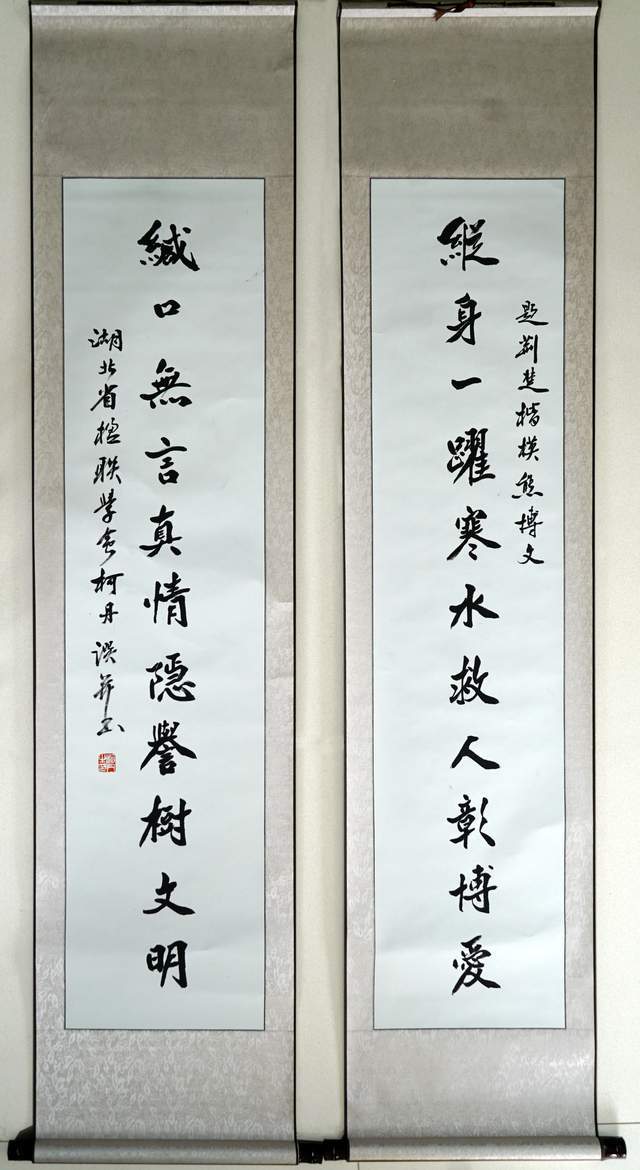 題荊楚楷模熊博文
縱身一躍寒水救人彰博愛
緘口無言真情隱譽樹文明
湖北省楹联學會柯丹撰并书